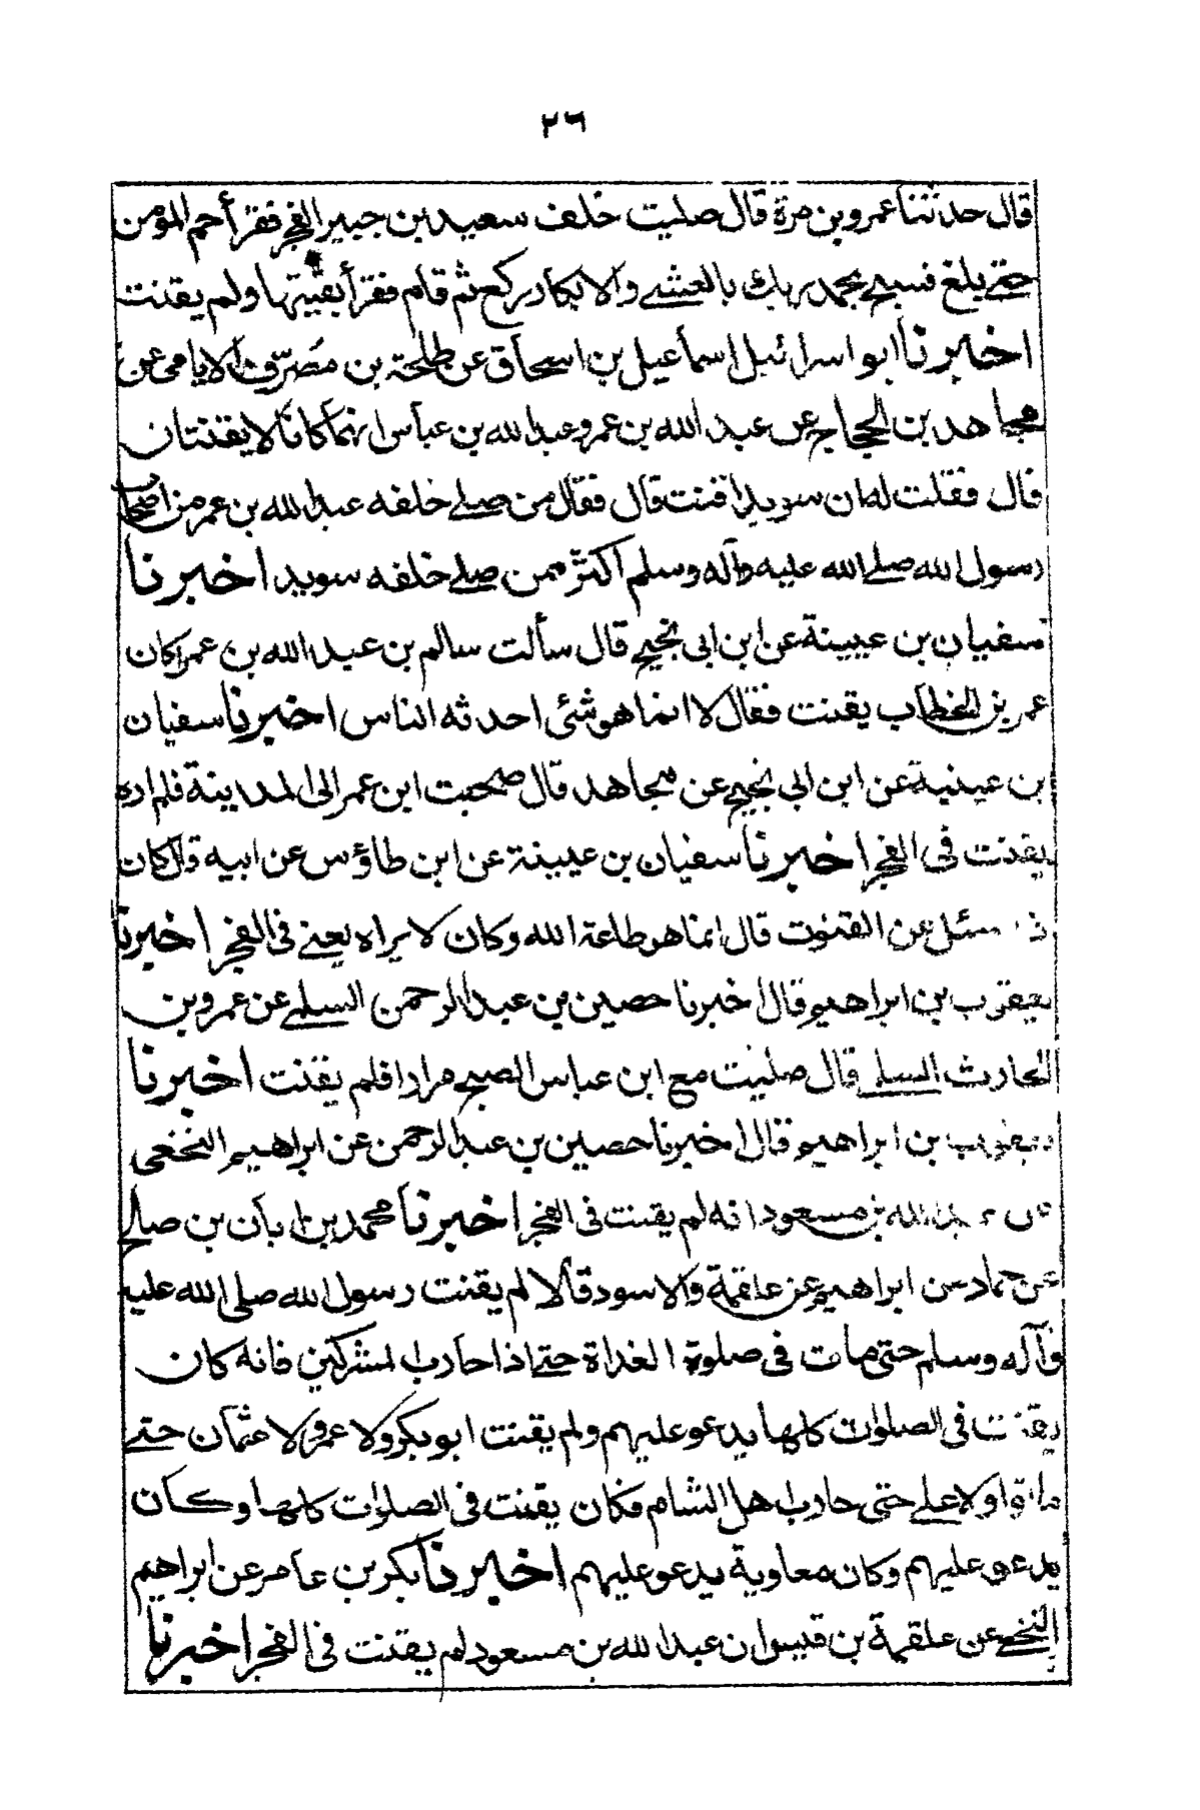 ٢٦
قال حدثنا عمرو بن مرة قال صليت خلف سعيد بن جبير الفجر فقرأ حم المؤمن
حتے بلغ فسبح بحمد ربك بالعشے والابكار ركع ثم قام فقرأ بقيتها ولم يقنت
اخبرنا ابو اسرائيل اسماعيل بن اسحاق عن طلحة بن مصرّف الايامى عن
مجاهد بن الحجاج عن عبد الله بن عمر وعبد الله بن عباس انهما كانا لا يقنتان
قال فقلت له ان سويدا قنت قال فقال من صلے خلفه عبد الله بن عمر من اصحاب
رسول الله صلے الله عليه وآله وسلم اكثر ممن صلے خلفه سويد اخبرنا
سفيان بن عيينة عن ابن ابى نجيح قال سألت سالم بن عبد الله بن عمر اكان
عمر بن الخطاب يقنت فقال لا انما هو شئى احدثه الناس اخبرنا سفيان
بن عينية عن ابن ابى نجيح عن مجاهد قال صحبت ابن عمر الى المدينة فلم اره
يقنت فى الفجر اخبرنا سفيان بن عيينة عن ابن طاؤس عن ابيه قال كان
سئل عن القنوت قال انما هو طاعة الله وكان لا يراه يعنے فى الفجر اخبرنا
يعقوب بن ابراهيم قال اخبرنا حصين بن عبد الرحمن السلمے عن عمرو بن
الحارث السلمے قال صليت مع ابن عباس الصبح مرارا فلم يقنت اخبرنا
يعقوب بن ابراهيم قال اخبرنا حصين بن عبد الرحمن عن ابراهيم النخعى
عن عبد الله بن مسعود انه لم يقنت فى الفجر اخبرنا محمد بن ابان بن صالح
عن حماد عن ابراهيم عن علقمة والاسود قالا لم يقنت رسول الله صلى الله عليه
وآله وسلم حتى مات فى صلوة الغداة حتے اذا حارب المشركين فانه كان
يقنت فى الصلوات كلها يدعو عليهم ولم يقنت ابو بكر ولا عمر ولا عثمان حتے
ماتوا ولا علے حتى حارب اهل الشام فكان يقنت فى الصلوات كلها وكان
يدعو عليهم وكان معاوية يدعو عليهم اخبرنا بكر بن عامر عن ابراهيم
النخعے عن علقمة بن قيس ان عبد الله بن مسعود لم يقنت فى الفجر اخبرنا